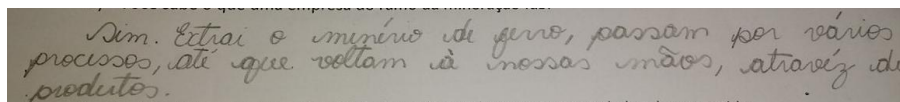 Sim. Extrai o minério de ferro, passam por vários
processos, até que voltam à nossas mãos, atravéz de
produtos.